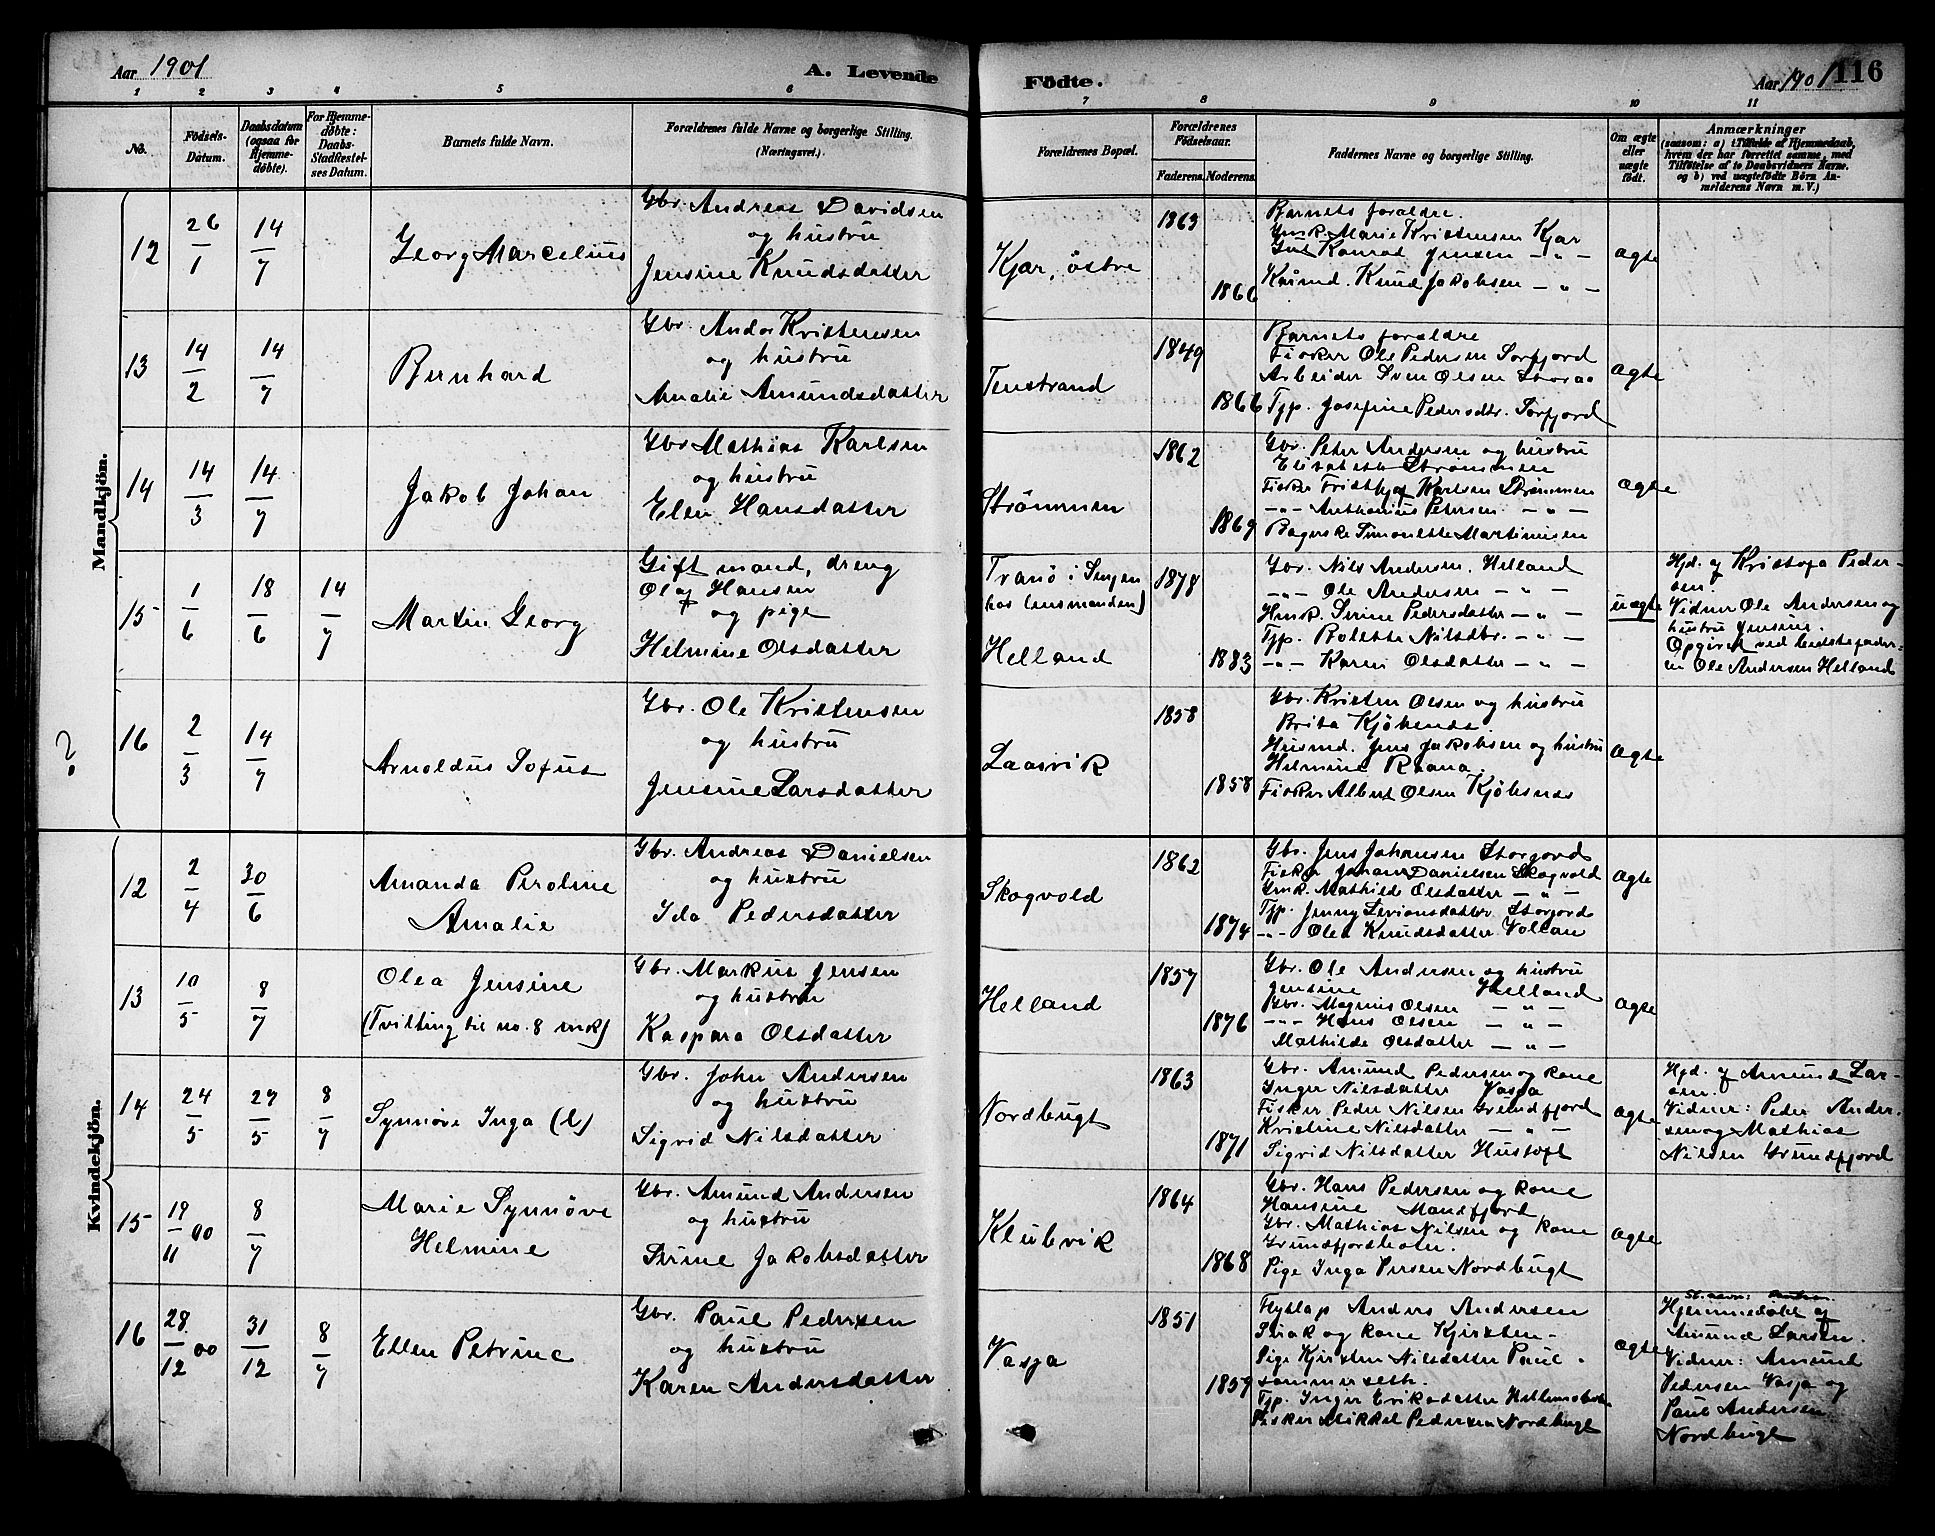 Aar 1901
A. Levende
Födte.
Aar 1901
116
1 2 3 4 5 6 7 8 9 10 11
No.
Födsels-Datum.
Daabsdatum (ogsaa for Hjemme-döbte).
For Hjemme-döbte: Daabs-Stadfæstel-ses Datum.
Barnets fulde Navn.
Forældrenes fulde Navne og borgerlige Stilling. (Næringsvei.)
Forældrenes Bopæl.
Forældrenes Födselsaar.
Faderens. Moderens.
Faddernes Navne og borgerlige Stilling.
Om ægte eller uægte födt.
Anmærkninger
(saasom: a) i Tilfælde af Hjemmedaab, hvem der har forrettet samme, med Tilföielse af to Daabsvidners Navne. og b) ved uægtefödte Börn An-melderens Navn m. V.)
Mandkjön.
12
26/1
14/7
Georg Marcelius
Gbr. Andreas Davidsen
og hustru
Jensine Knudsdatter
Kjar, östre
1863
1866
Barnets foraldre.
Gmk. Marie Kristensen Kjar
Gut Konrad Jensen — " —
Kaarmd. Knud Jakobsen — " —
ægte
13
14/2
14/7
Bernhard
Gbr. Andor Kristensen
og hustru
Amalie Amundsdatter
Tenstrand
1849
1866
Barnets foraldre
Fisker Ole Pedersen Sorfjord
Arbeider Sven Olsen Storaa
Tjp. Josefine Pedersdtr. Sorfjord
ægte
14
14/3
14/7
Jakob Johan
Gbr Mathias Karlsen
og hustru
Elen Hansdatter
Strömmen
1862
1869
Gbr. Peter Andersen og hustru
Elisabeth Strömmen
Fisker Fridthjof Karlsen Strömmen
—"— Anthonius Petersen — " —
Bagerske Simonette Martinusen
ægte
15
1/6
18/6
14/7
Martin Georg
Gift mand, dreng
Olaf Hansen
og pige
Helmine Olsdatter
Tranö i Senjen
hos lensmanden)
Helland
1878
1883
Gbr. Nils Andersen, Helland
—"— Ole Andersen — " —
Hmk. Serine Pedersdatter — " —
Tjp. Bolette Nilsdtr. — " —
—"— Karen Olsdatter — " —
uægte
Hjd. af Kristofa Peder-
sen.
Vidner Ole Andersen og
hustru Jensine.
Opgivet ved bedstefader-
en Ole Andersen Helland
?
16
2/3
14/7
Arnoldus Sofus
Gbr. Ole Kristensen
og hustru
Jensine Larsdatter
Laasvik
1858
1858
Gbr. Kristen Olsen og hustru
Brita Kjöbsnes.
Husmd. Jens Jakobsen og hustru
Helmine Raana.
Fisker Albert Olsen Kjöbsnes
ægte
Kvindekjön.
12
2/4
30/6
Amanda Peroline
Amalie
Gbr. Andreas Danielsen
og hustru
Ida Pedersdatter
Skogvold
1862
1874
Gbr. Jens Johansen Storjord
Fisker Johan Danielsen Skogvold
Gmk. Mathilde Olsdatter — " —
Tjp. Jenny Sevionsdatter Storjord
—"— Olea Knudsdatter Vollan
ægte
13
10/5
8/7
Olea Jensine
(Tvilling til no. 8 mdk)
Gbr. Markus Jensen
og hustru
Kaspara Olsdatter
Helland
1857
1876
Gbr. Ole Andersen og hustru
Jensine Helland
Gbr. Magnus Olsen — " —
—"— Hans Olsen — " —
Mathilde Olsdatter — " —
ægte
14
24/5
27/5
8/7
Synnöve Inga (l)
Gbr. John Andersen
og hustru
Sigrid Nilsdatter
Nordbugt
1863
1871
Gbr. Amund Pedersen og kone
Inger Nilsdatter Vasja
Fisker Peder Nilsen Grundfjord
Kristine Nilsdatter — " —
Sigrid Nilsdatter Hustoft
ægte
Hjd. af Amund Lar-
sen.
Vidner: Peder Ander-
sen og Mathias
Nilsen Grundfjord
15
19/11 00
8/7
Marie Synnöve
Helmine
Gbr. Amund Andersen
og hustru
Serine Jakobsdatter
Klubvik
1864
1868
Gbr. Hans Pedersen og kone
Hansine Mandfjord
Gbr. Mathias Nilsen og kone
Grundfjordbotn.
Pige Inga Versen Nordbugt
ægte
16
28/12 00
31/12
8/7
Ellen Petrine
Gbr. Paul Pedersen
og hustru
Karen Andersdatter
Vasja
1851
1859
Flytlap Anders Andersen
Sviak og kone Kjirsten
Pige Kjirsten Nilsdatter Paul
sommerseth.
Tjp. Inger Eriksdatter Hellemobotn
Fisker Mikkel Pedersen Nordbugt
ægte
Hjemmedöbt af
Amund Larsen.
Vidner: Amund
Pedersen Vasja og
Paul Andersen
Nordbugt